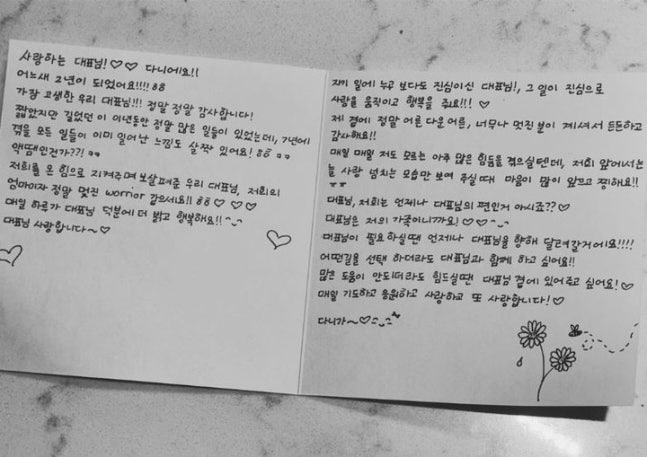 사랑하는 대표님!♡♡ 다니에요!!
어느새 2년이 되었어요!!!! 88
가장 고생한 우리 대표님!!! 정말 정말 감사합니다!
짧았지만 길었던 이 이년동안 정말 많은 일들이 있었는데, 7년에
겪을 모든 일들이 이미 일어난 느낌도 살짝 있어요! 88
액땜인건가??!
저희를 온 힘으로 지켜주며 보살펴준 우리 대표님, 저희의
엄마이자 정말 멋진 worrior 같으세요!! 88 ♡♡♡
매일 하루가 대표님 덕분에 더 밝고 행복해요!! ^_^
대표님 사랑합니다~♡
자기 일에 누구 보다도 진심이신 대표님!, 그 일이 진심으로
사람을 움직이고 행복을 줘요!!! ♡
제 곁에 정말 어른 다운 어른, 너무나 멋진 분이 계셔서 든든하고
감사해요!!
매일 매일 저도 모르는 아주 많은 힘듦을 겪으실텐데, 저희 앞에서는
늘 사랑 넘치는 모습만 보여 주실때 마음이 많이 아프고 찡해요!!
대표님, 저희는 언제나 대표님의 편인거 아시죠??♡
대표님은 저의 가족이니까요!♡♡^_^
대표님이 필요하실땐 언제나 대표님을 향해 달려갈거에요!!!!
어떤길을 선택 하더라도 대표님과 함께 하고 싶어요!!
많은 도움이 안되더라도 힘드실땐 대표님 곁에 있어주고 싶어요!♡
매일 기도하고 응원하고 사랑하고 또 사랑합니다!♡
다니가~♡^_^